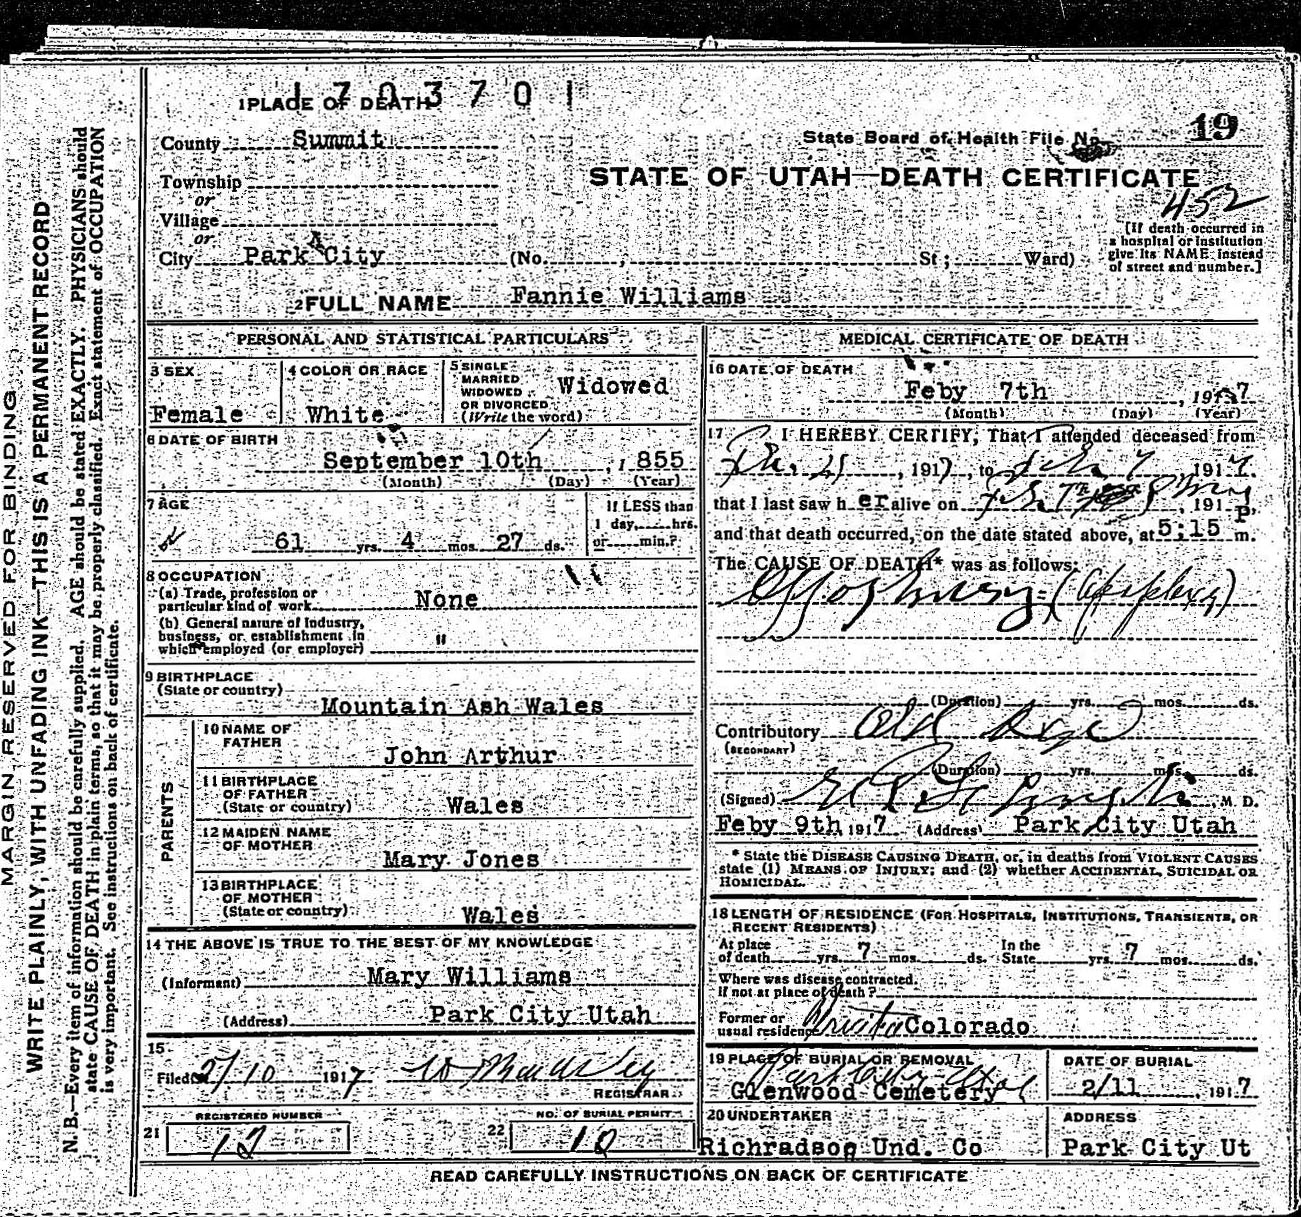 MARGIN RESERVED FOR BINDING
WRITE PLAINLY, WITH UNFADING INK—THIS IS A PERMANENT RECORD
N. B.—Every item of information should be carefully supplied. AGE should be stated EXACTLY. PHYSICIANS should
state CAUSE OF DEATH in plain terms, so that it may be properly classified. Exact statement of OCCUPATION
is very important. See instructions on back of certificate.
1 PLACE OF DEATH
1703701
County Summit
Township
or
Village
or
City Park City (No. , St; Ward)
State Board of Health File No. 19
STATE OF UTAH—DEATH CERTIFICATE
452
[If death occurred in
a hospital or institution
give its NAME instead
of street and number.]
2 FULL NAME Fannie Williams
PERSONAL AND STATISTICAL PARTICULARS
3 SEX
Female
4 COLOR OR RACE
White
5 SINGLE
MARRIED
WIDOWED
OR DIVORCED
(Write the word)
Widowed
6 DATE OF BIRTH
September 10th , 1855
(Month) (Day) (Year)
7 AGE
61 yrs. 4 mos. 27 ds.
If LESS than
1 day, hrs.
or min.?
8 OCCUPATION
(a) Trade, profession or
particular kind of work None
(b) General nature of Industry,
business, or establishment in
which employed (or employer) "
9 BIRTHPLACE
(State or country)
Mountain Ash Wales
PARENTS
10 NAME OF
FATHER
John Arthur
11 BIRTHPLACE
OF FATHER
(State or country) Wales
12 MAIDEN NAME
OF MOTHER
Mary Jones
13 BIRTHPLACE
OF MOTHER
(State or country) Wales
14 THE ABOVE IS TRUE TO THE BEST OF MY KNOWLEDGE
(Informant) Mary Williams
(Address) Park City Utah
15
Filed 2/10 1917
REGISTRAR
REGISTERED NUMBER
21 12
NO. OF BURIAL PERMIT
22 12
MEDICAL CERTIFICATE OF DEATH
16 DATE OF DEATH
Feby 7th , 1917
(Month) (Day) (Year)
17 I HEREBY CERTIFY, That I attended deceased from
, 1917, to Feb. 7, 1917.
that I last saw her alive on Feb 7th , 191
and that death occurred, on the date stated above, at 5:15 P m.
The CAUSE OF DEATH* was as follows:
(Apoplexy)
(Duration) yrs. mos. ds.
Contributory Old Age
(SECONDARY)
(Duration) yrs. mos. ds.
(Signed) , M. D.
Feby 9th 1917 (Address) Park City Utah
* State the DISEASE CAUSING DEATH, or, in deaths from VIOLENT CAUSES
state (1) MEANS OF INJURY; and (2) whether ACCIDENTAL, SUICIDAL OR
HOMICIDAL.
18 LENGTH OF RESIDENCE (FOR HOSPITALS, INSTITUTIONS, TRANSIENTS, OR
RECENT RESIDENTS)
At place
of death yrs. 7 mos. ds.
In the
State yrs. 7 mos. ds.
Where was disease contracted.
If not at place of death?
Former or
usual residence Colorado
19 PLACE OF BURIAL OR REMOVAL
Park City Utah
Glenwood Cemetery
DATE OF BURIAL
2/11 , 1917
20 UNDERTAKER
Richradson Und. Co
ADDRESS
Park City Ut
READ CAREFULLY INSTRUCTIONS ON BACK OF CERTIFICATE